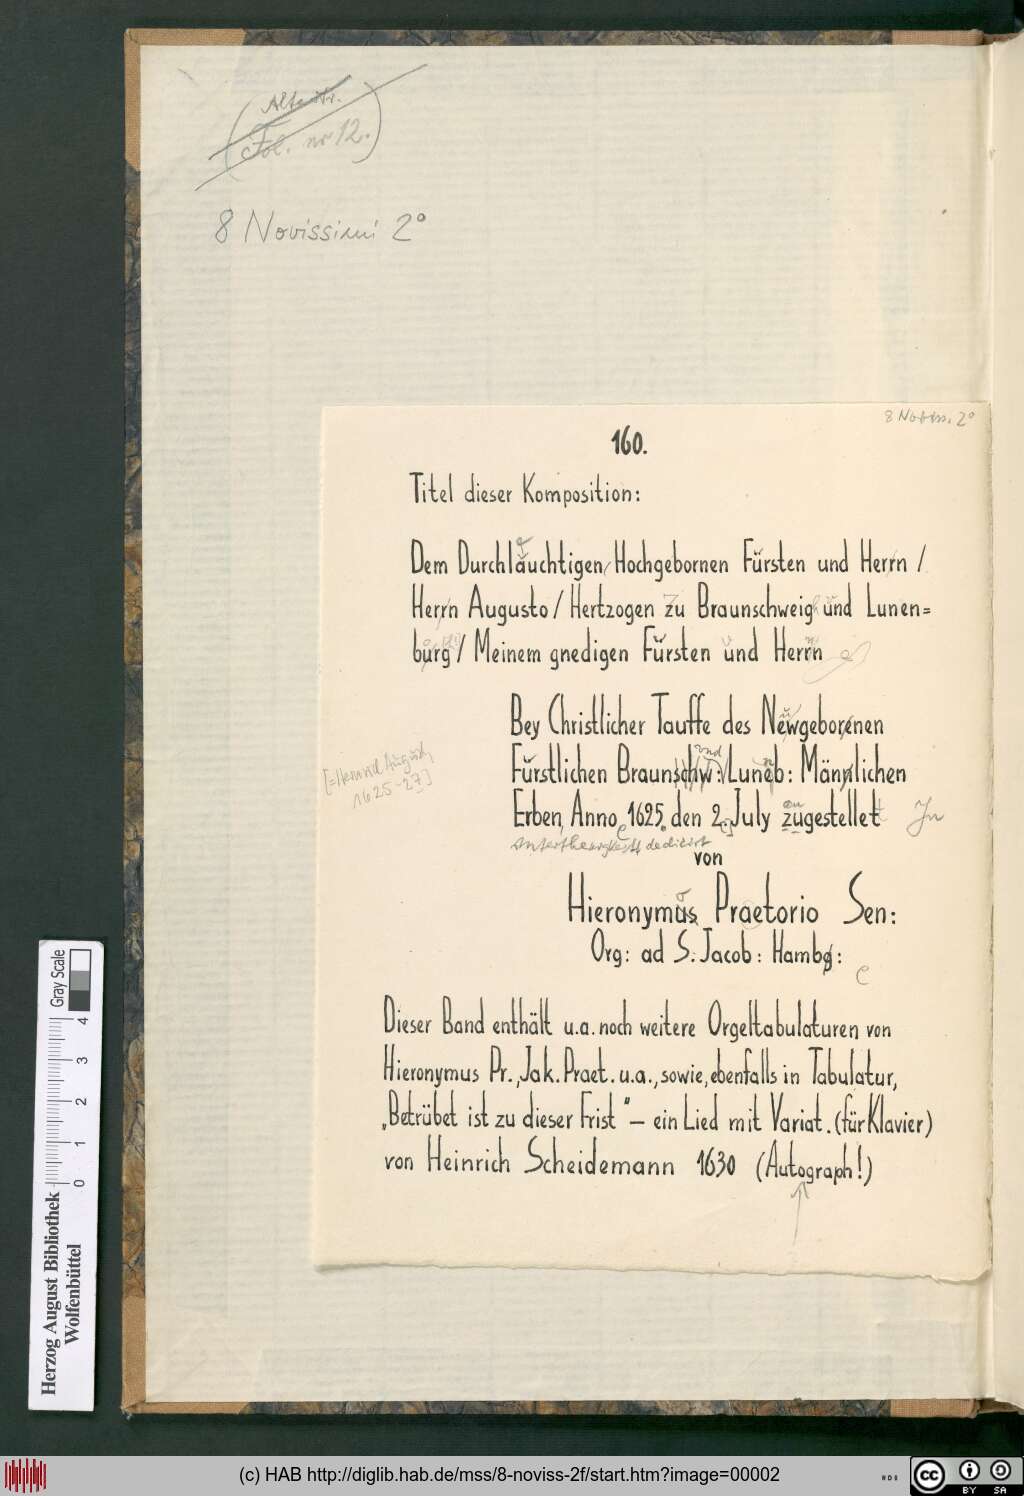 Fol. nr 12.
8 Novissimi 2°
8 Noviss. 2°
160.
Titel dieser Komposition:
Dem Durchläuchtigen / Hochgebornen Fürsten und Herrn /
Herrn Augusto / Hertzogen zu Braunschweig und Lunen=
burg / Meinem gnedigen Fürsten und Herrn
Bey Christlicher Tauffe des Newgeborenen
Fürstlichen Braunschw: und Luneb: Männlichen
[= Heinrich August,
1625-27]
Erben, Anno 1625. den 2. July zugestellet In
dedicirt
von
Hieronymus Praetorio Sen:
Org: ad S. Jacob: Hambg:
Dieser Band enthält u.a. noch weitere Orgeltabulaturen von
Hieronymus Pr., Jak. Praet. u.a., sowie, ebenfalls in Tabulatur,
„Betrübet ist zu dieser Frist" — ein Lied mit Variat. (für Klavier)
von Heinrich Scheidemann 1630 (Autograph!)
Herzog August Bibliothek
Wolfenbüttel
0 1 2 3 4
Gray Scale
(c) HAB http://diglib.hab.de/mss/8-noviss-2f/start.htm?image=00002
cc BY SA